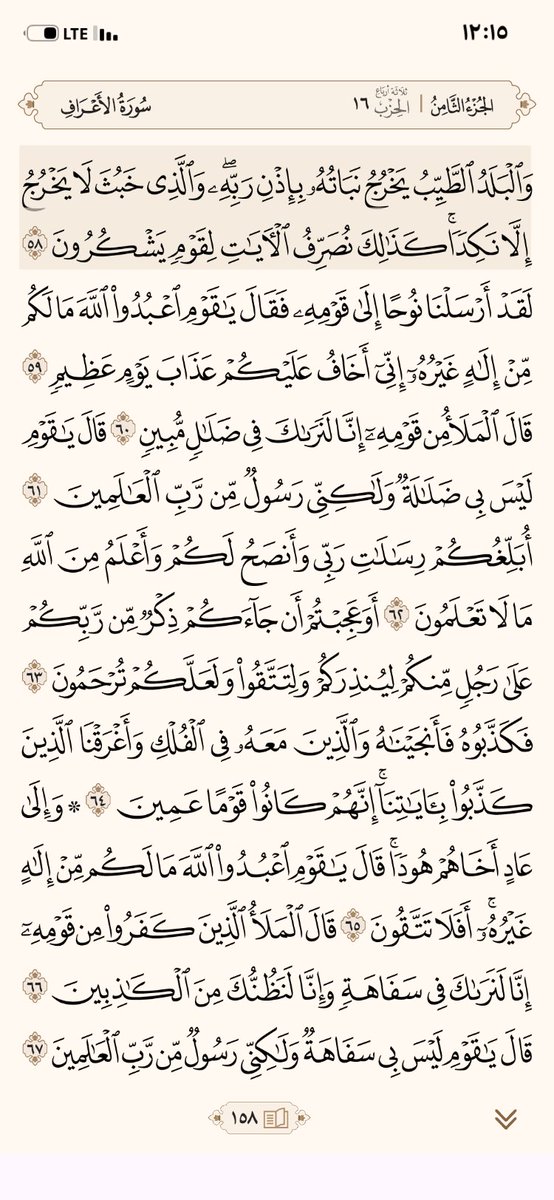 ١٢:١٥ LTE
سُورَةُ الأَعْرَافِ الجُزْءُ الثَّامِنُ | ثلاثة أرباع الحِزْب ١٦
وَٱلْبَلَدُ ٱلطَّيِّبُ يَخْرُجُ نَبَاتُهُۥ بِإِذْنِ رَبِّهِۦۖ وَٱلَّذِى خَبُثَ لَا يَخْرُجُ
إِلَّا نَكِدًاۚ كَذَٰلِكَ نُصَرِّفُ ٱلْـَٔايَٰتِ لِقَوْمٍ يَشْكُرُونَ ٥٨
لَقَدْ أَرْسَلْنَا نُوحًا إِلَىٰ قَوْمِهِۦ فَقَالَ يَٰقَوْمِ ٱعْبُدُوا۟ ٱللَّهَ مَا لَكُم
مِّنْ إِلَٰهٍ غَيْرُهُۥٓ إِنِّىٓ أَخَافُ عَلَيْكُمْ عَذَابَ يَوْمٍ عَظِيمٍ ٥٩
قَالَ ٱلْمَلَأُ مِن قَوْمِهِۦٓ إِنَّا لَنَرَىٰكَ فِى ضَلَٰلٍ مُّبِينٍ ٦٠ قَالَ يَٰقَوْمِ
لَيْسَ بِى ضَلَٰلَةٌ وَلَٰكِنِّى رَسُولٌ مِّن رَّبِّ ٱلْعَٰلَمِينَ ٦١
أُبَلِّغُكُمْ رِسَٰلَٰتِ رَبِّى وَأَنصَحُ لَكُمْ وَأَعْلَمُ مِنَ ٱللَّهِ
مَا لَا تَعْلَمُونَ ٦٢ أَوَعَجِبْتُمْ أَن جَآءَكُمْ ذِكْرٌ مِّن رَّبِّكُمْ
عَلَىٰ رَجُلٍ مِّنكُمْ لِيُنذِرَكُمْ وَلِتَتَّقُوا۟ وَلَعَلَّكُمْ تُرْحَمُونَ ٦٣
فَكَذَّبُوهُ فَأَنجَيْنَٰهُ وَٱلَّذِينَ مَعَهُۥ فِى ٱلْفُلْكِ وَأَغْرَقْنَا ٱلَّذِينَ
كَذَّبُوا۟ بِـَٔايَٰتِنَآۚ إِنَّهُمْ كَانُوا۟ قَوْمًا عَمِينَ ٦٤ * وَإِلَىٰ
عَادٍ أَخَاهُمْ هُودًاۚ قَالَ يَٰقَوْمِ ٱعْبُدُوا۟ ٱللَّهَ مَا لَكُم مِّنْ إِلَٰهٍ
غَيْرُهُۥٓۚ أَفَلَا تَتَّقُونَ ٦٥ قَالَ ٱلْمَلَأُ ٱلَّذِينَ كَفَرُوا۟ مِن قَوْمِهِۦٓ
إِنَّا لَنَرَىٰكَ فِى سَفَاهَةٍ وَإِنَّا لَنَظُنُّكَ مِنَ ٱلْكَٰذِبِينَ ٦٦
قَالَ يَٰقَوْمِ لَيْسَ بِى سَفَاهَةٌ وَلَٰكِنِّى رَسُولٌ مِّن رَّبِّ ٱلْعَٰلَمِينَ ٦٧
١٥٨